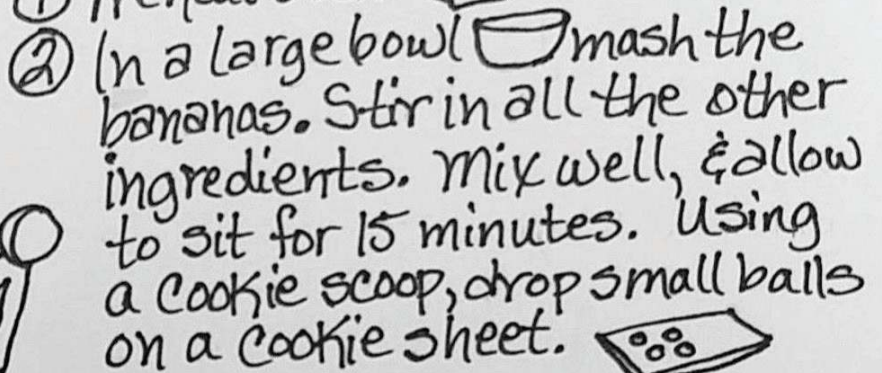 ② In a large bowl mash the
bananas. Stir in all the other
ingredients. Mix well, & allow
to sit for 15 minutes. Using
a cookie scoop, drop small balls
on a cookie sheet.